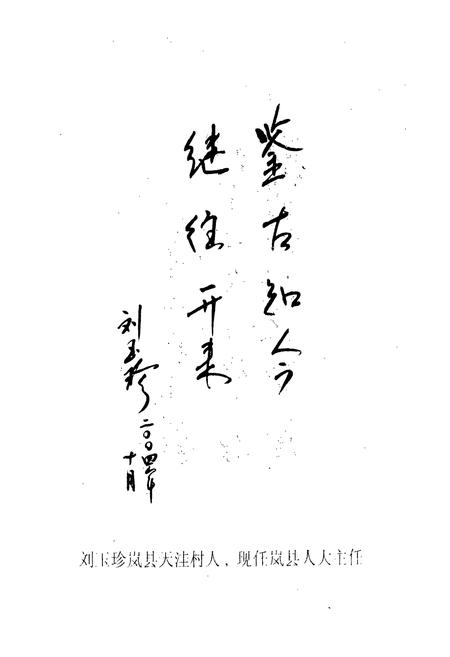 鉴古知今
继往开来
刘玉珍
二〇〇四年
十月
刘玉珍岚县天洼村人，现任岚县人大主任